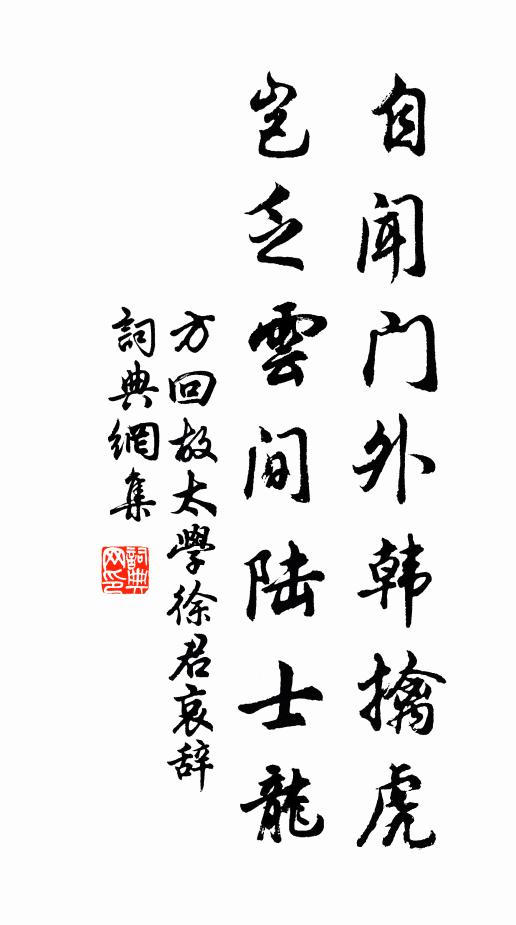 自闻门外韩擒虎
岂乏雲间陆士龍
方回故太学徐君哀辞
詞典網集
詞典網印